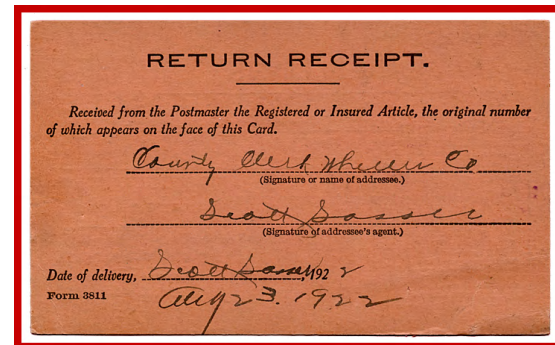 RETURN RECEIPT.
Received from the Postmaster the Registered or Insured Article, the original number
of which appears on the face of this Card.
County Clerk Wheeler Co
(Signature or name of addressee.)
Scott Sasser
(Signature of addressee's agent.)
Date of delivery, Scott Sasser, 1922
Form 3811
Aug 23. 1922